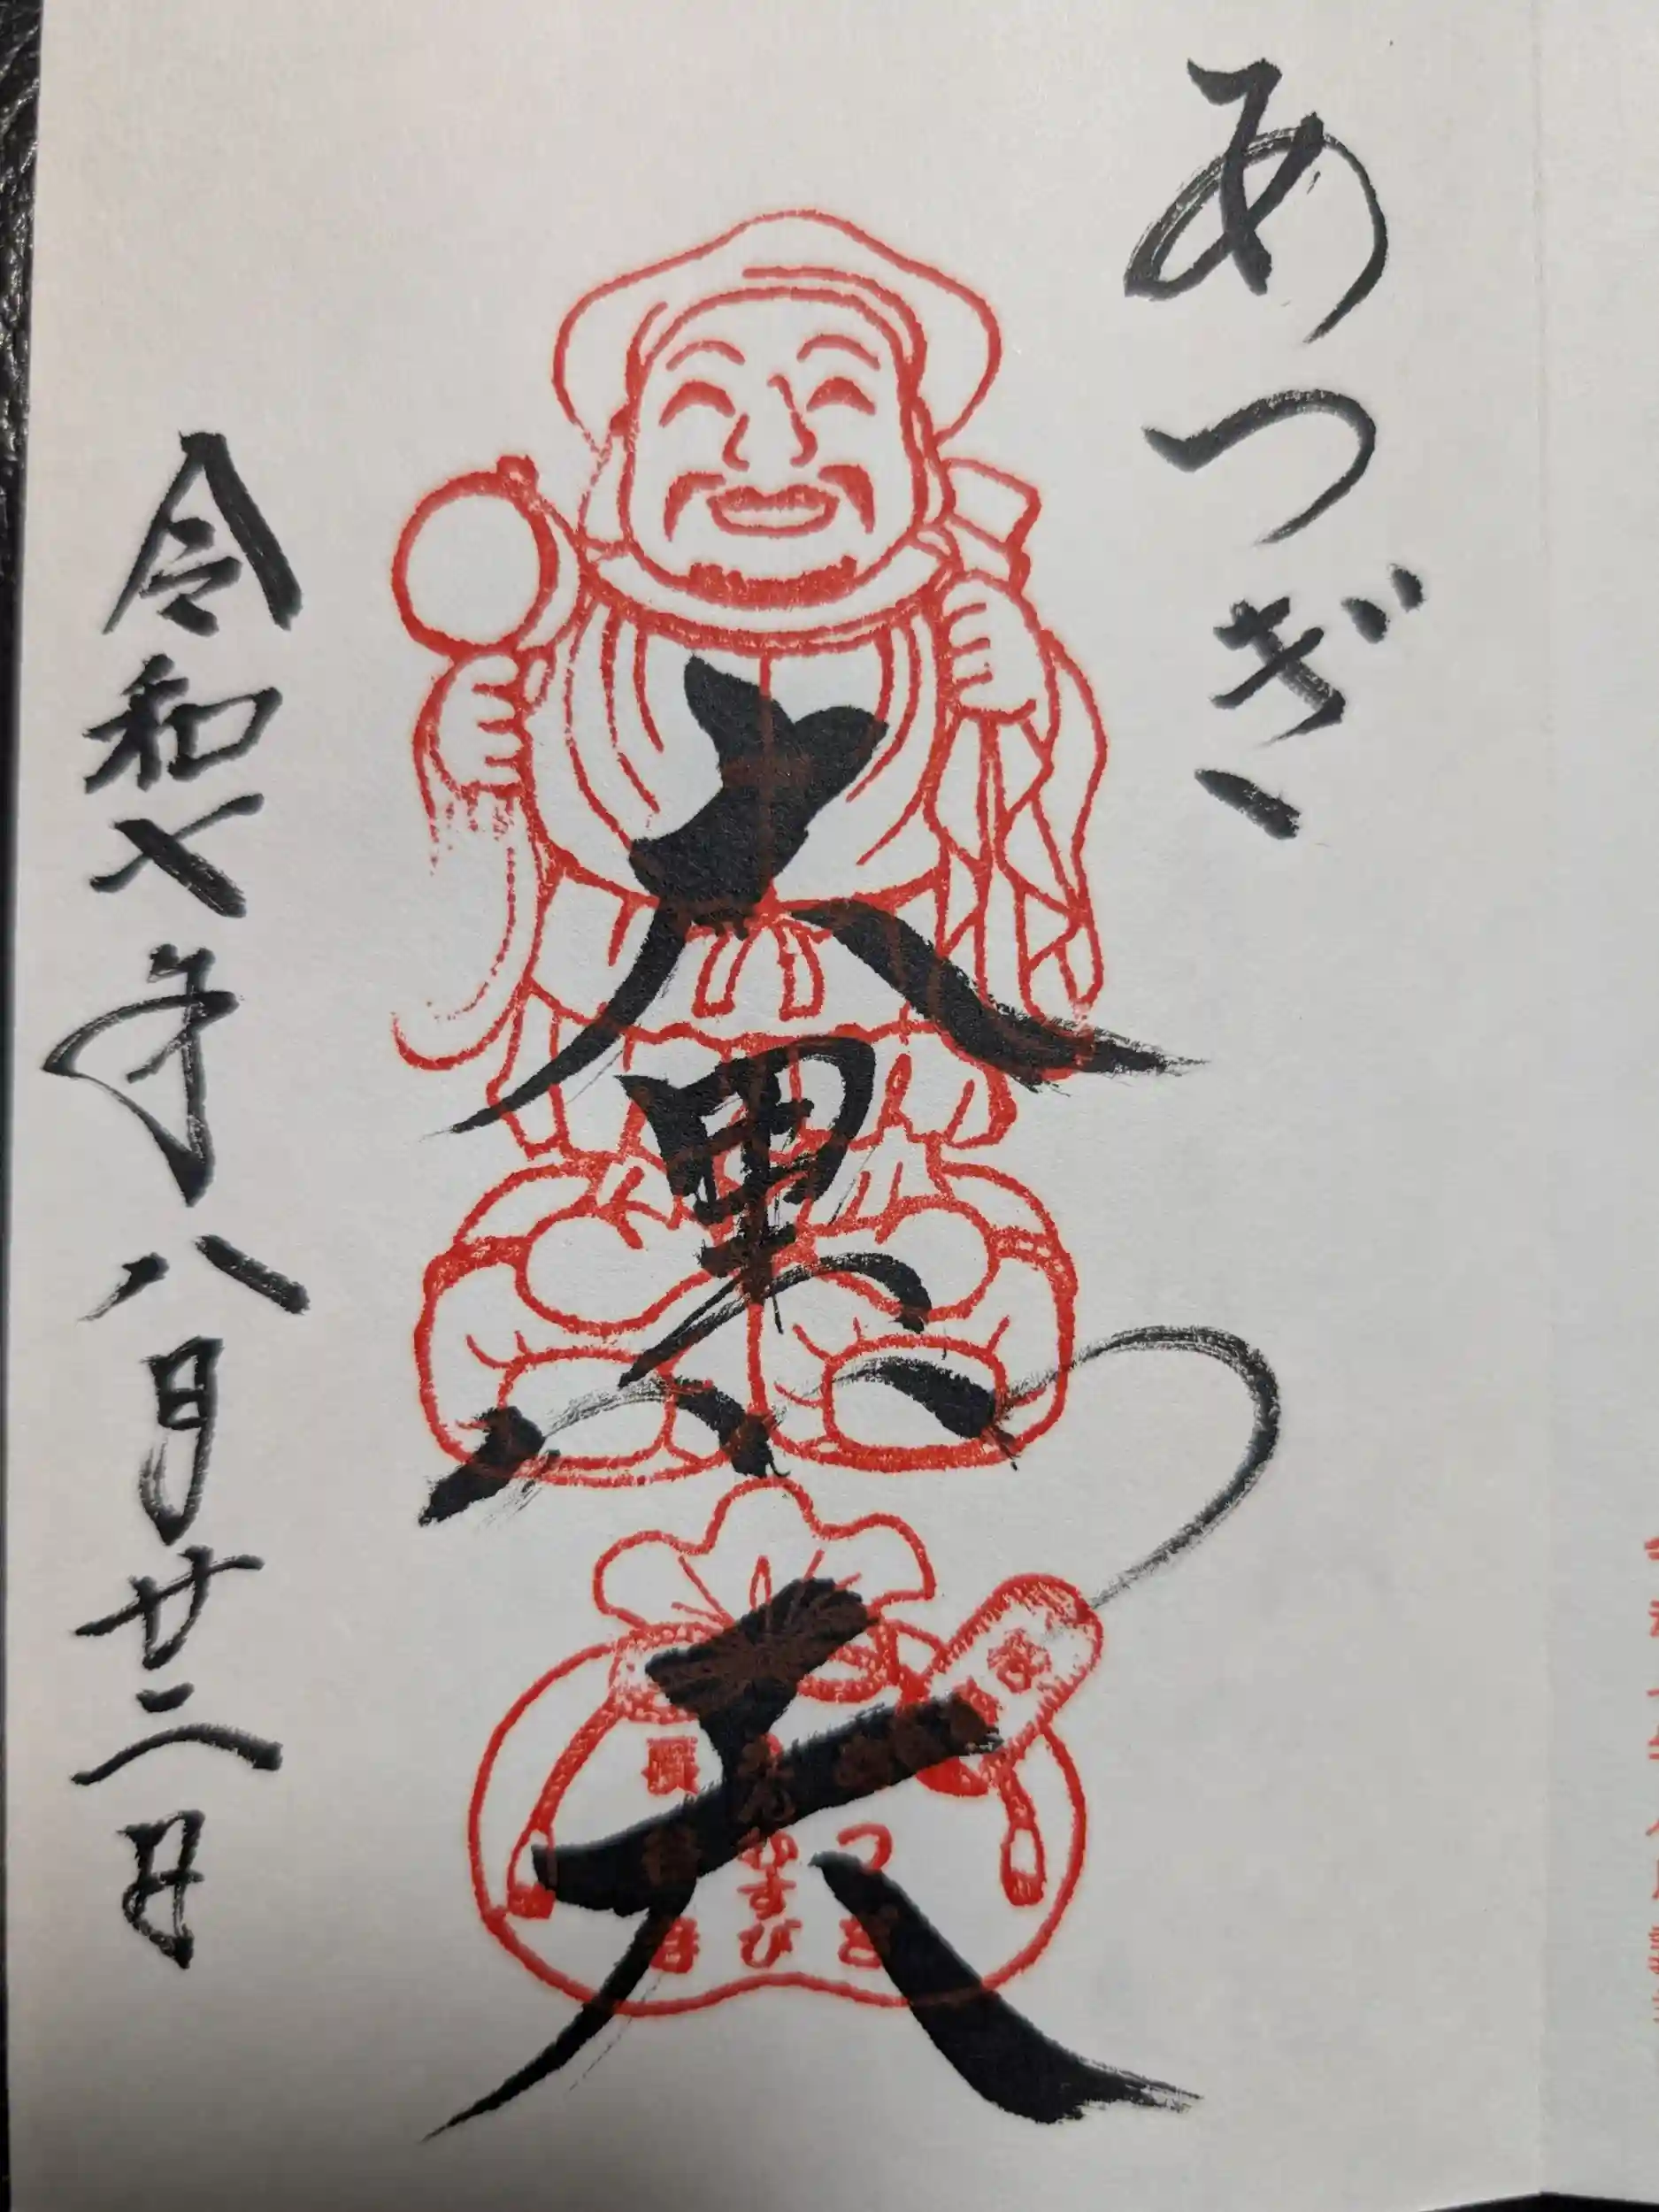 あつぎ
大黒天
令和七年八月廿二日
つぎ
えんむすび